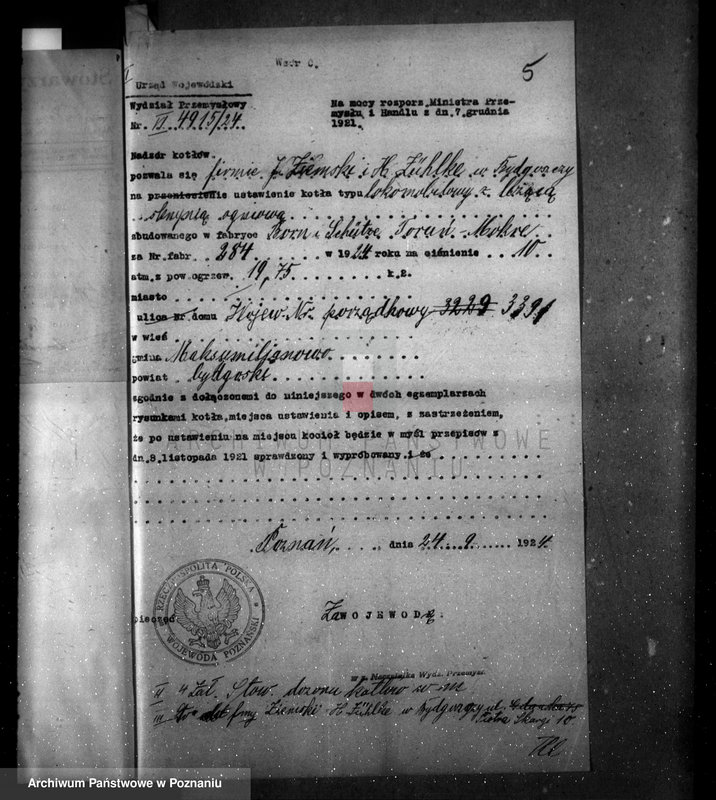 Wzór C.
5
Urząd Wojewódzki
Wydział Przemysłowy
Nr. VI 4915/24.
Na mocy rozporz. Ministra Prze-
mysłu i Handlu z dn. 7. grudnia
1921.
Nadzór kotłów
pozwala się firmie J. Ziemski i H. Zühlke w Bydgoszczy
na przeniesienie ustawienie kotła typu lokomobilowy z leżącą
skrzynią ogniową
zbudowanego w fabryce Born i Schütze Toruń-Mokre
za Nr. fabr. 284 w 1924 roku na ciśnienie 10
atm. z pow. ogrzew. 19,75 k. 2.
miasto
ulica Nr. domu Wojew. Nr. porządkowy 3229 3391
w wieś
gmina Maksymiljanowo
powiat bydgoski
zgodnie z dołączonemi do niniejszego w dwóch egzemplarzach
rysunkami kotła, miejsca ustawienia i opisem, z zastrzeżeniem,
że po ustawieniu na miejscu kocioł będzie w myśl przepisów z
dn. 8. listopada 1921 sprawdzony i wypróbowany i że
ARCHIWUM PAŃSTWOWE
W POZNANIU
Poznań, dnia 24. 9. 1924.
RZECZPOSPOLITA POLSKA
WOJEWODA POZNAŃSKI
pieczęć
Za WOJEWODĘ.
w z. Naczelnika Wydz. Przemysł.
II 4 Zał. Stow. dozoru kotłów w m
III firmy Ziemski H. Zühlke w Bydgoszczy ul.
Piotra Skargi 10
Stowarz
Archiwum Państwowe w Poznaniu